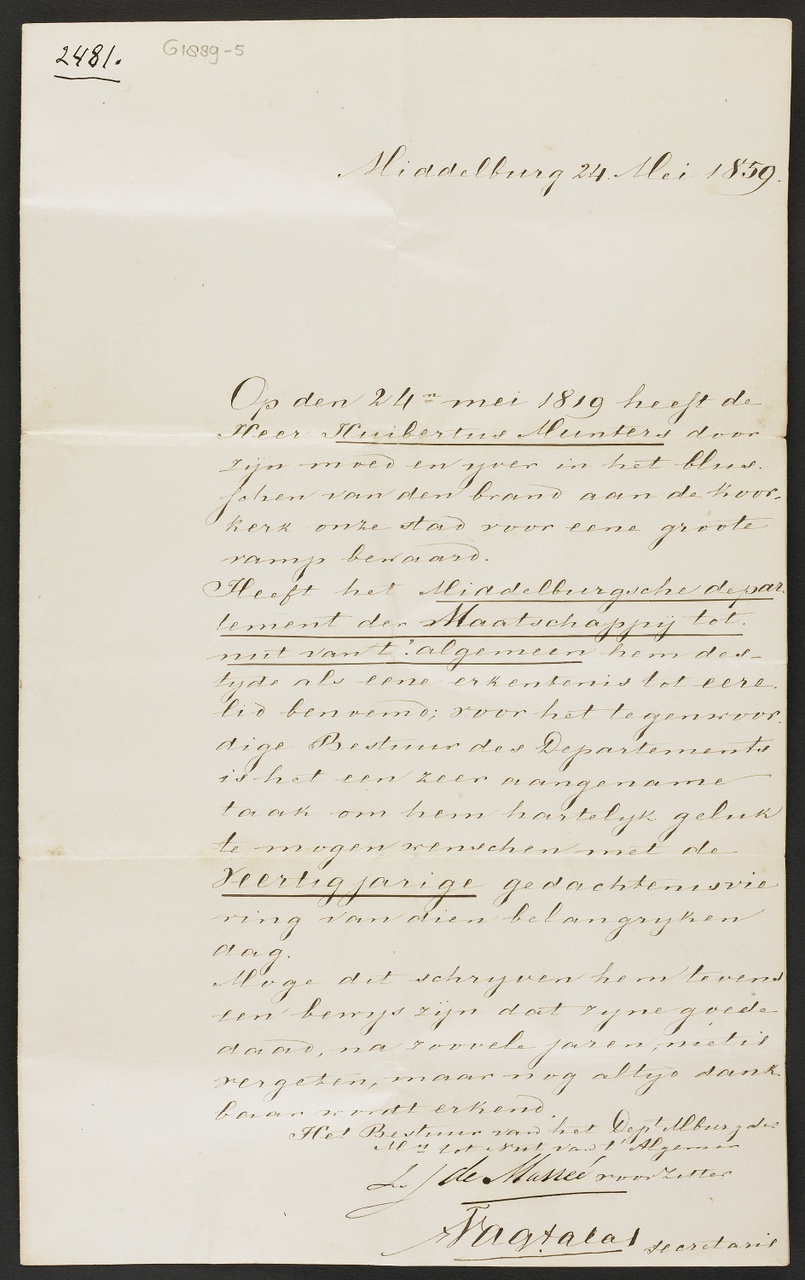 2481.
G1889-5
Middelburg 24 Mei 1859.
Op den 24n mei 1819 heeft de
Heer Huibertus Munters door
zijn moed en yver in het blus-
schen van den brand aan de Koor-
kerk onze stad voor eene groote
ramp bewaard.
Heeft het Middelburgsche depar-
tement der Maatschappij tot
nut van t' algemeen hem des-
tyds als eene erkentenis tot eere
lid benoemd; voor het tegenwoor-
dige Bestuur des Departements
is het een zeer aangename
taak om hem hartelyk geluk
te mogen wenschen met de
Veertigjarige gedachtenisvie
ring van dien belangryken
dag.
Moge dit schryven hem tevens
een bewys zijn dat zyne goede
daad, na zoovele jaren, niet is
vergeten, maar nog altyd dank-
baar wordt erkend.
Het Bestuur van het Dept Mburg der
Mij tot Nut van t' Algemeen
L. J de voorzitter
secretaris